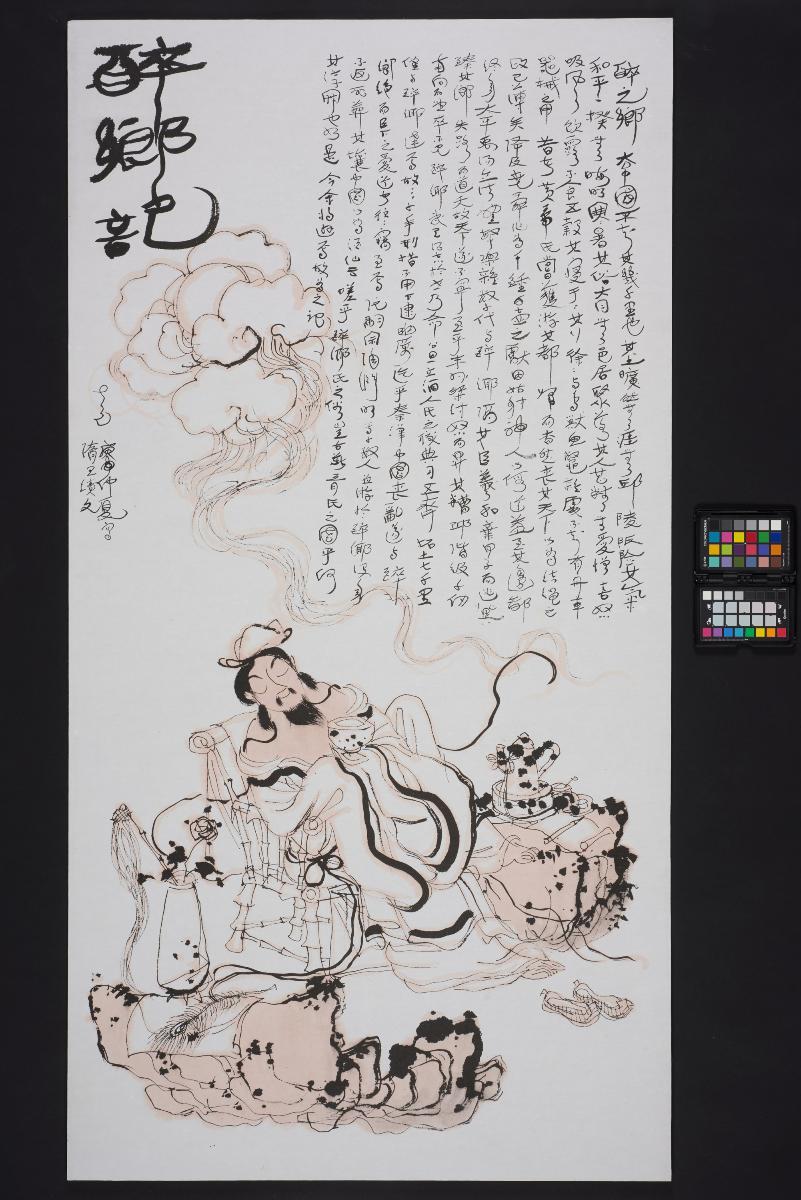 醉鄉記
醉之鄉去中國不知其幾千里也其土曠然無涯無邱陵阪險其氣
和平一揆無晦明寒暑其俗大同無邑居聚落其人甚精無愛憎喜怒
吸風飲露不食五穀其寢于于其行徐徐與鳥獸魚鼈雜處不知有舟車
器械之用昔者黃帝氏嘗獲游其都歸而杳然喪其天下以為結繩之
政已薄矣降及堯舜作為千鍾百壺之獻因姑射神人以假道蓋至其邊鄙
終身太平禹湯立法禮繁樂雜數十代與醉鄉隔其臣羲和棄甲子而逃冀
臻其鄉失路而道夭故天下遂不寧至乎末孫桀紂怒而昇其糟邱階級千仞
南向而望卒不見醉鄉武王得志於世乃命公旦立酒人氏之職典司五齊拓土七千里
僅與醉鄉達焉故四十年刑措不用下逮幽厲迄乎秦漢中國喪亂遂與醉
鄉絕而臣下之愛道者往往竊至焉阮嗣宗陶淵明等十數人並游於醉鄉沒身
不返死葬其壤中國以為酒仙云嗟乎醉鄉氏之俗豈古華胥氏之國乎何
其淳寂也如是今余將遊焉故為之記
庚申仲夏寫
隋王績文